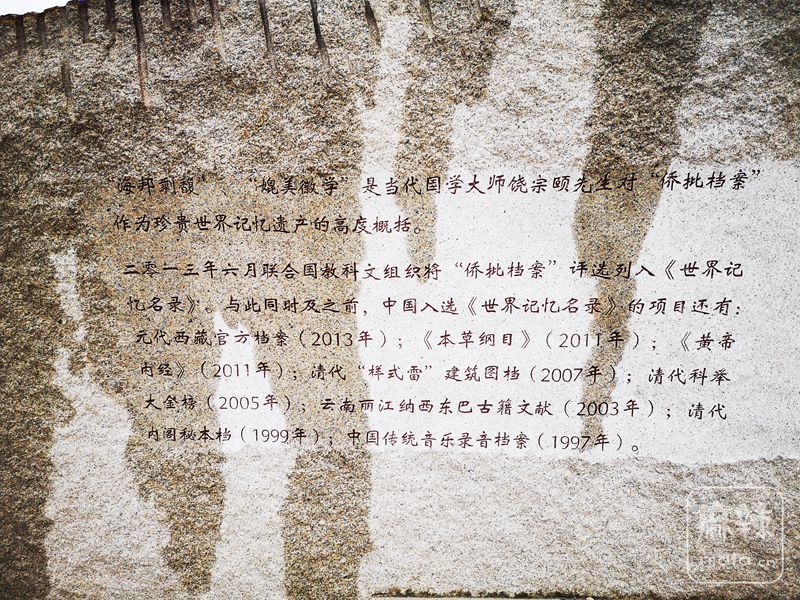 海邦剩馥”、“媲美徽学”是当代国学大师饶宗颐先生对“侨批档案”
作为珍贵世界记忆遗产的高度概括。
二零一三年六月联合国教科文组织将“侨批档案”评选列入《世界记
忆名录》。与此同时及之前，中国入选《世界记忆名录》的项目还有：
元代西藏官方档案（2013年）；《本草纲目》（2011年）；《黄帝
内经》（2011年）；清代“样式雷”建筑图档（2007年）；清代科举
大金榜（2005年）；云南丽江纳西东巴古籍文献（2003年）；清代
内阁秘本档（1999年）；中国传统音乐录音档案（1997年）。
麻辣